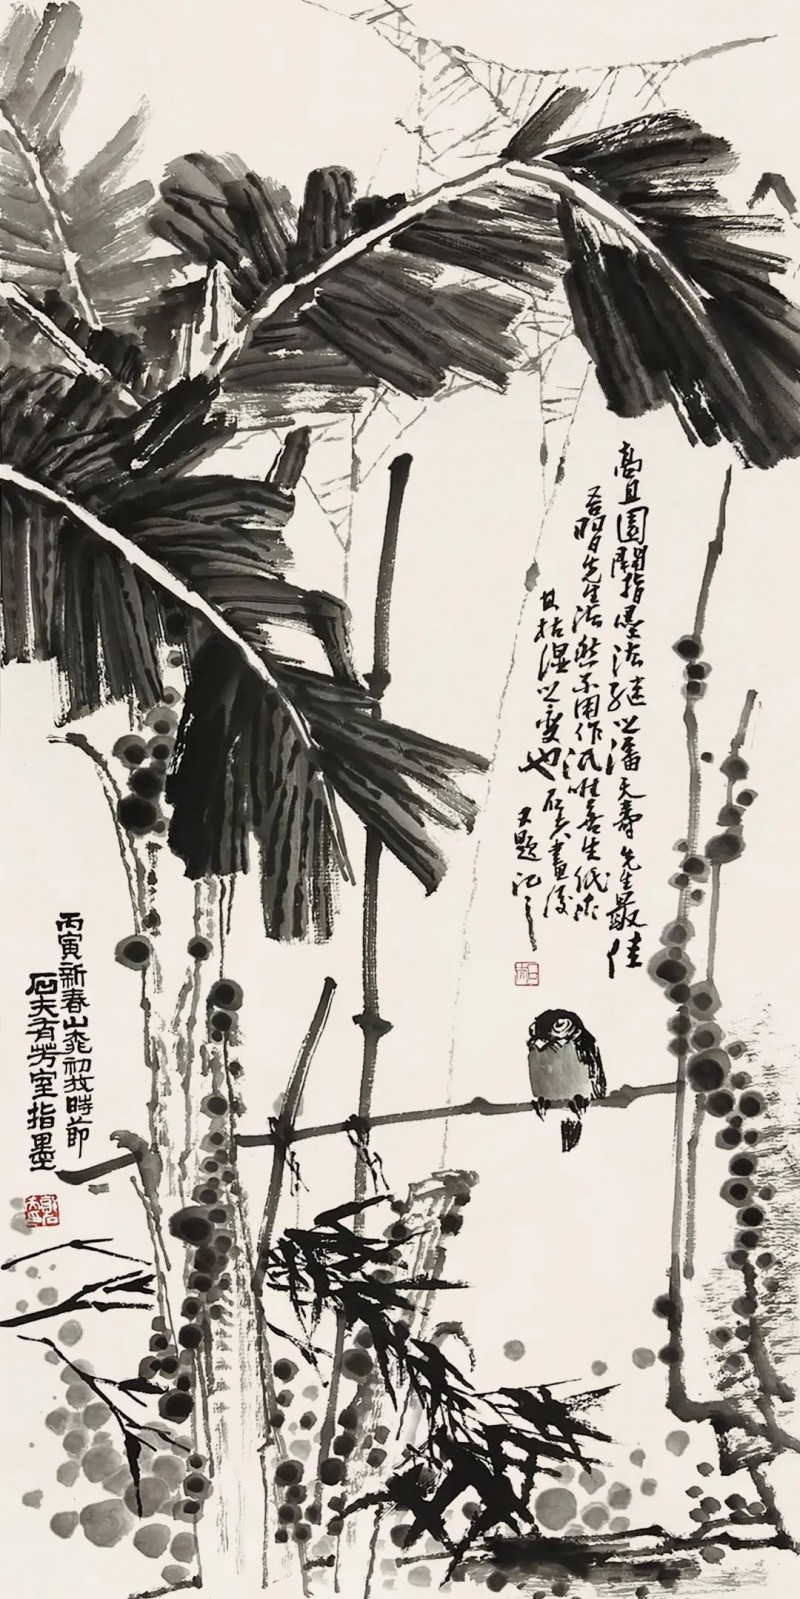 高且園開指墨法繼以潘天壽先生最佳
吾明日先生法然不用作法唯喜生紙求
其枯濕以變也石夫畫後
又題記之
丙寅新春山花初放時節
石夫有芳室指墨